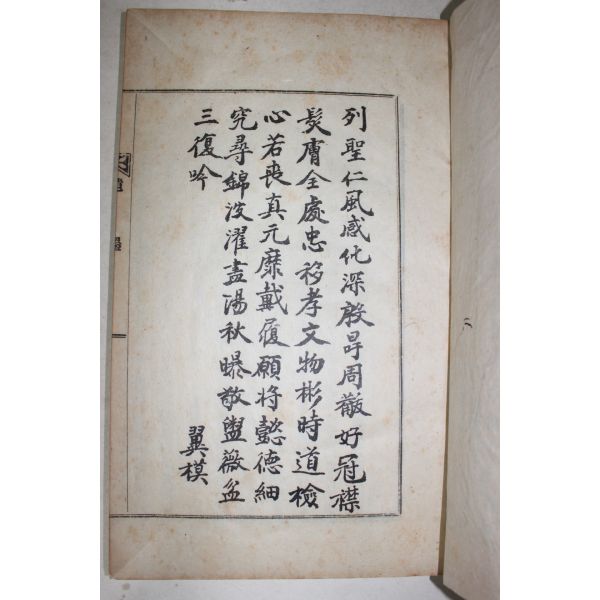 列聖仁風感化深殷冔周黻好冠襟
髮膚全處忠移孝文物彬時道檢
心若喪真元靡戴履願將懿德細
究尋錦汶濯盡湯秋曝敬盥薇盆
三復吟
翼模